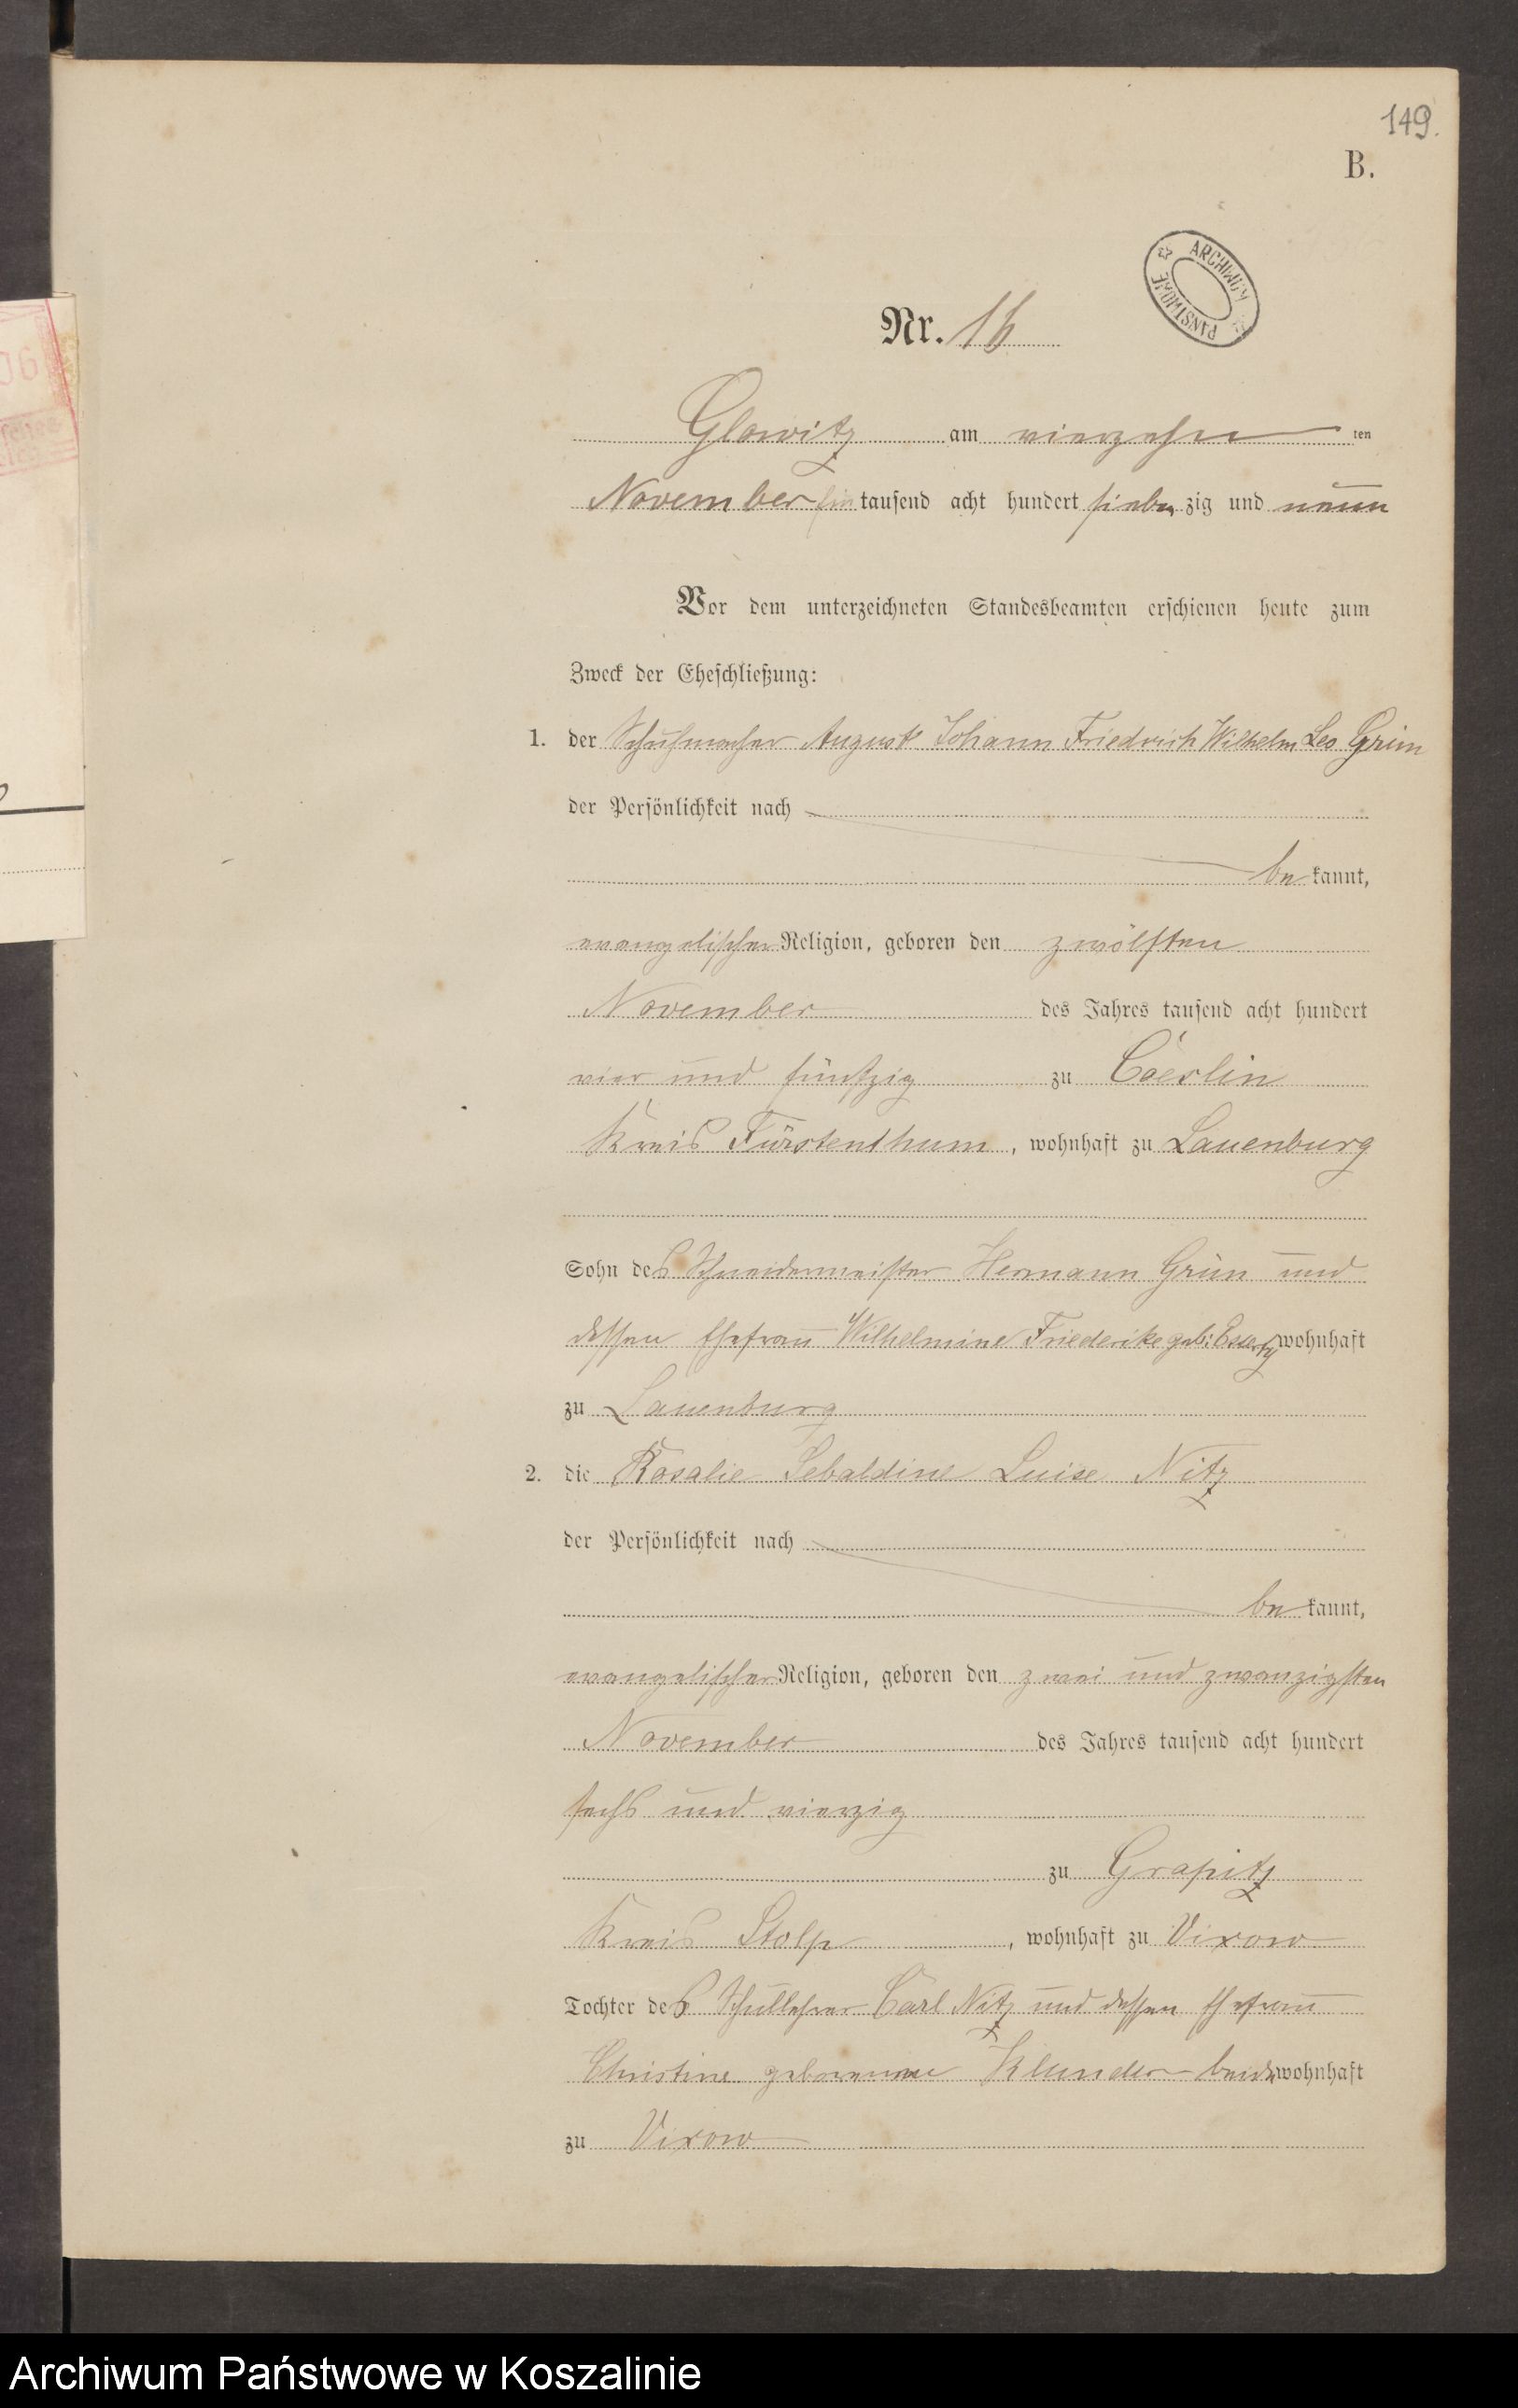 149.
B.
ARCHIWUM PAŃSTWOWE
Nr. 16
Glowitz am vierzehn ten
November ein tausend acht hundert sieben zig und neun
Vor dem unterzeichneten Standesbeamten erschienen heute zum
Zweck der Eheschließung:
1. der Schuhmacher August Johann Friedrich Wilhelm Leo Grün
der Persönlichkeit nach
be kannt,
evangelischer Religion, geboren den zwölften
November des Jahres tausend acht hundert
vier und fünfzig zu Cöerlin
Kreis Fürstenthum, wohnhaft zu Lauenburg
Sohn des Schneidermeister Hermann Grün und
dessen Ehefrau Wilhelmine Friederike geb: wohnhaft
zu Lauenburg
2. die Rosalie Sebaldine Luise Nitz
der Persönlichkeit nach
be kannt,
evangelischer Religion, geboren den zwei und zwanzigsten
November des Jahres tausend acht hundert
sechs und vierzig
zu Grapitz
Kreis Stolp, wohnhaft zu Vixow
Tochter des Schullehrer Carl Nitz und dessen Ehefrau
Christine geborenene Klunder beide wohnhaft
zu Vixow
Archiwum Państwowe w Koszalinie